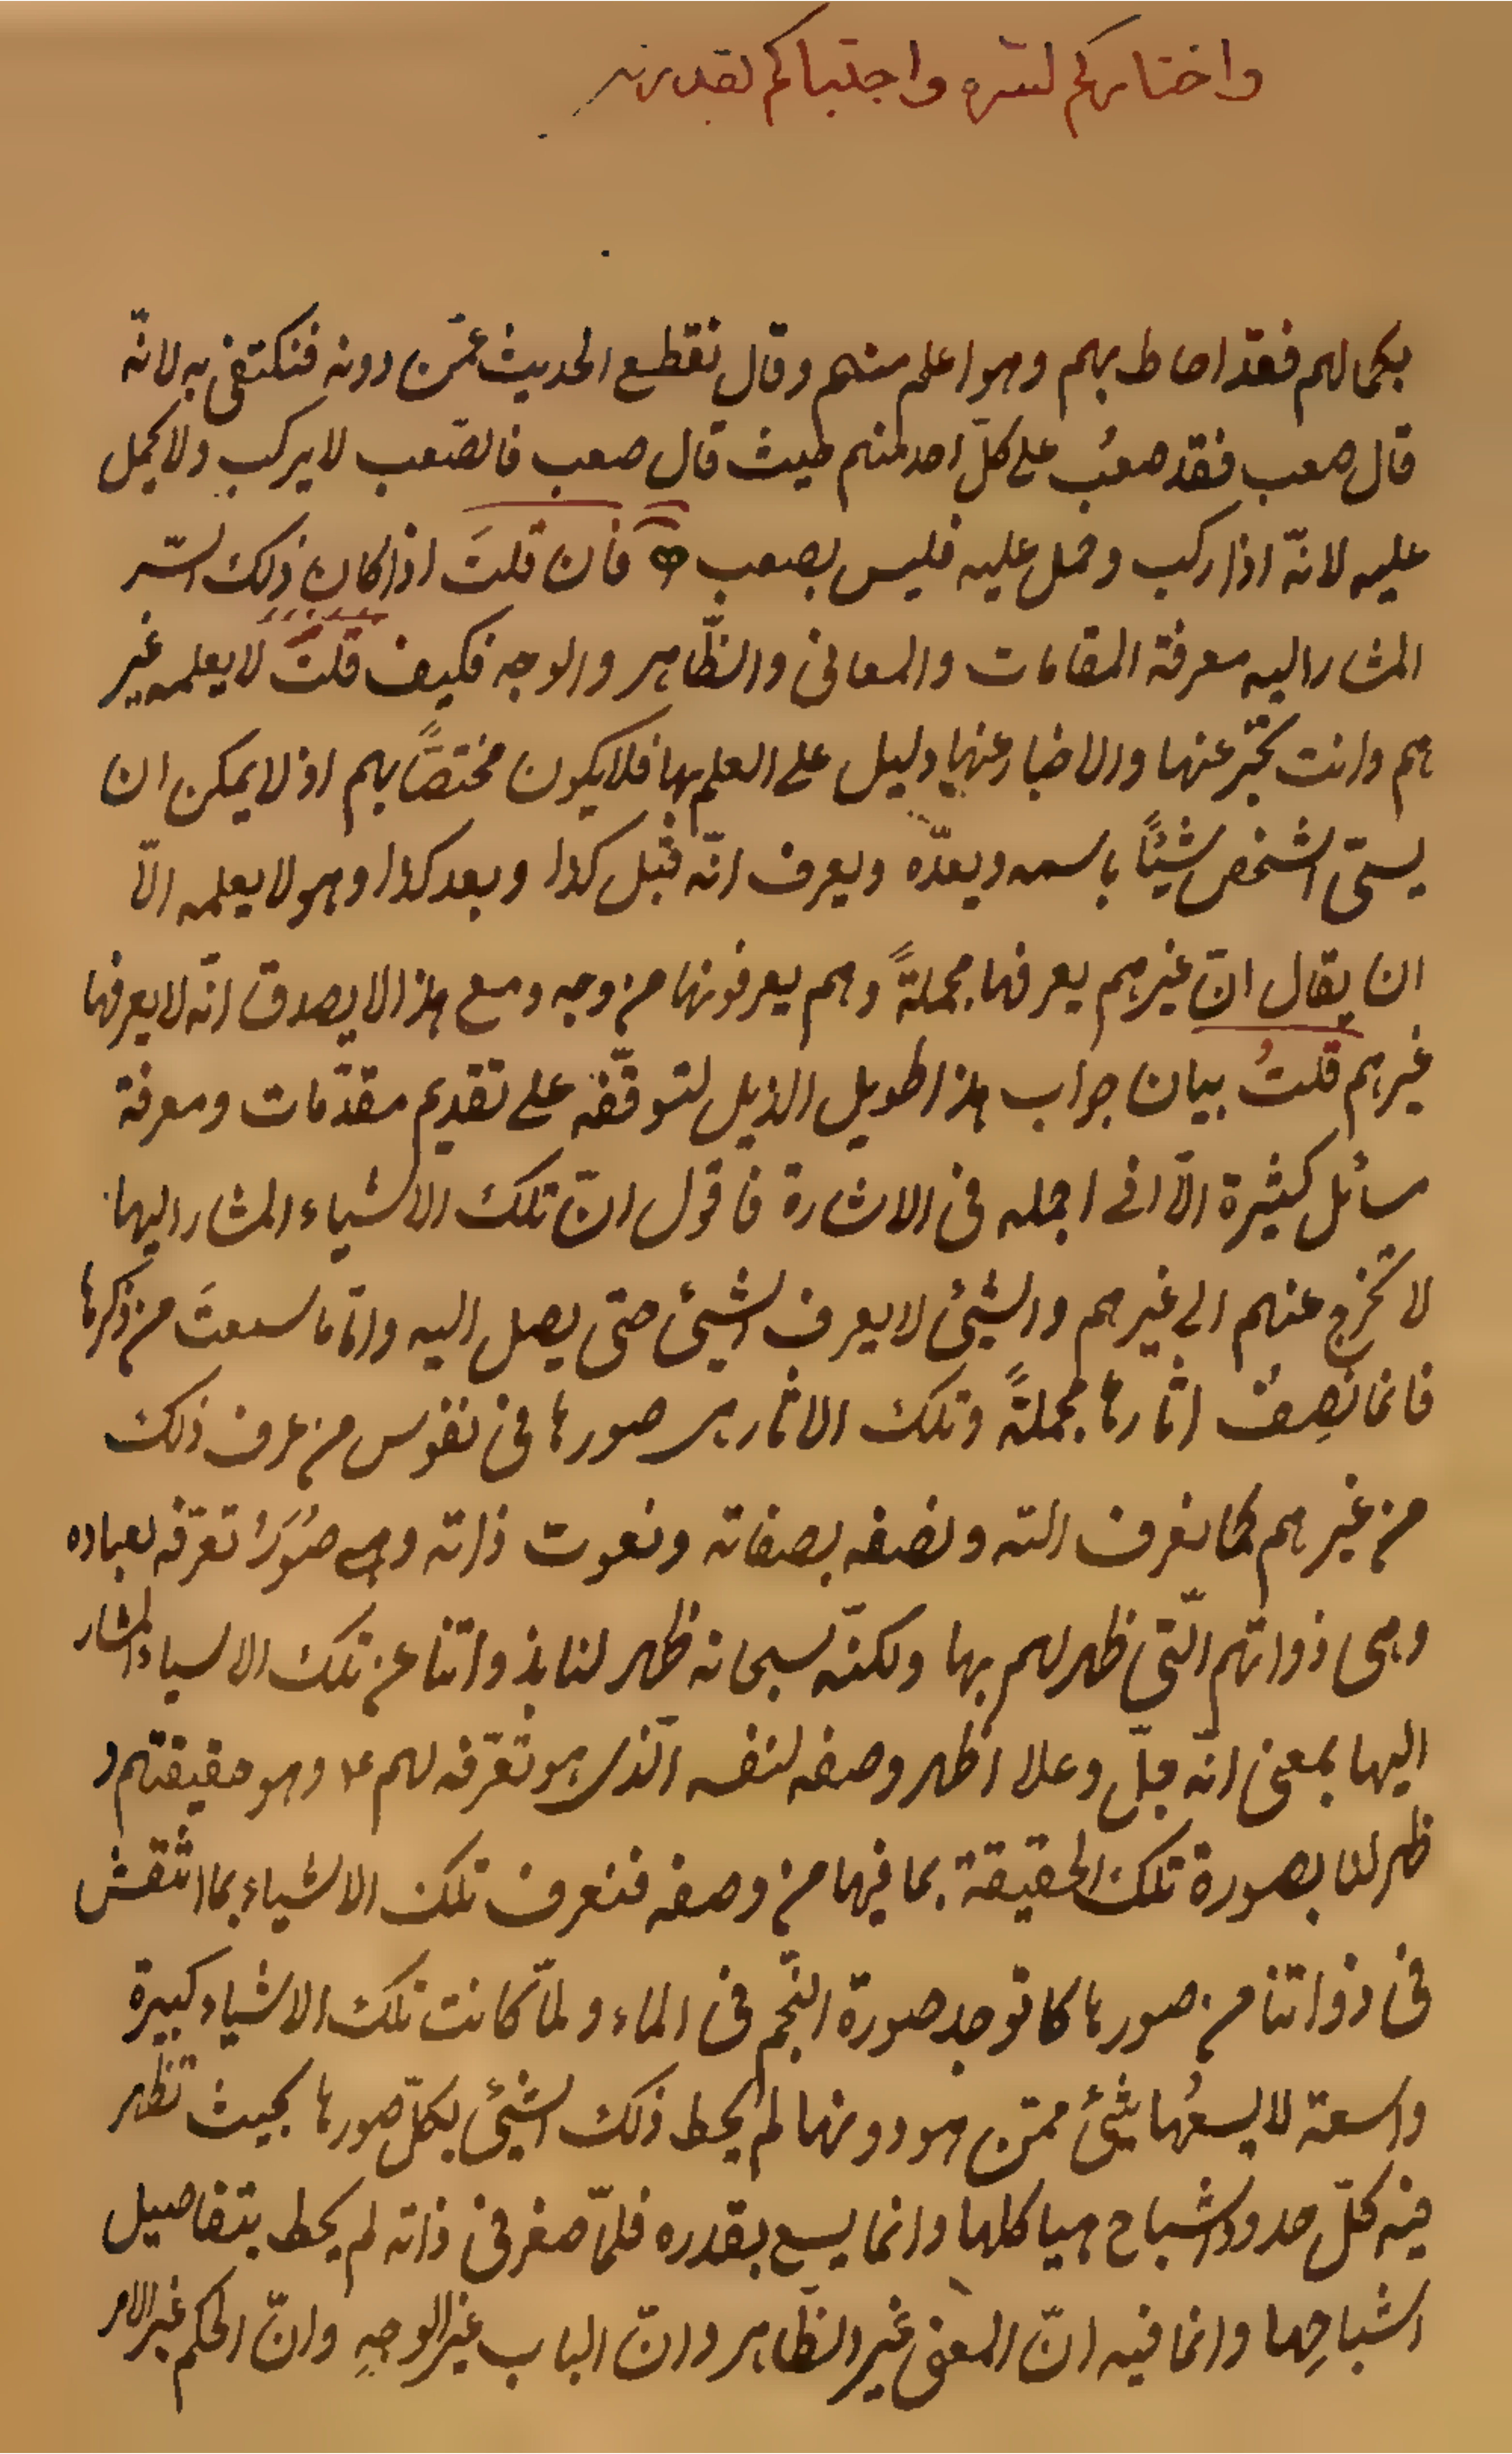 واختاركم لسره واجتباكم بقدرته
بكمالهم فقد احاط بهم وهو اعلم منهم وقال نقطع الحديث عمّن دونه فنكتفى به لانّه
قال صعب فقد صعُب على كلّ احد منهم حيث قال صعب فالصّعب لا يركب ولا يحمل
عليه لانّه اذا ركب وحمل عليه فليس بصعب فان قلتَ اذا كان ذلك السّر
المشار اليه معرفة المقامات والمعانى والظّاهر والوجه فكيف قلتَ لا يعلمه غير
هم وانت تخبّر عنها والاخبار عنها دليل على العلم بها فلا يكون مختصّاً بهم اذ لا يمكن ان
يسمّى الشخص شيئاً باسمه ويعدّه ويعرف انّه قبل كذا وبعد كذا وهو لا يعلمه الّا
ان يقال انّ غيرهم يعرفها مجملةً وهم يعرفونها من وجه ومع هذا لا يصدق انّه لا يعرفها
غيرهم قلتُ بيان جواب هذا طويل الذيل لتوقّفه على تقديم مقدّمات ومعرفة
مسائل كثيرة الّا انى اجمله فى الاشارة فاقول انّ تلك الاشياء المشار اليها
لا تخرج عنهم الى غيرهم والشيئ لا يعرف الشيئ حتى يصل اليه وامّا ما سمعتَ من ذكرها
فانما نصِفُ اثارها مجملةً وتلك الاثار هى صورها فى نفوس من عرف ذلك
من غيرهم كما نعرف الله ونصفه بصفاته ونعوت ذاته وهى صُوَرُ تعرّفه لعباده
وهى ذواتهم الّتى ظهر لهم بها ولكنّه سبحانه ظهر لنا بذواتنا عن تلك الاشياء المشار
اليها بمعنى انّه جلّ وعلا اظهر وصفه لنفسه الّذى هو تعرّفه لهم ع وهو حقيقتهم و
ظهر لنا بصورة تلك الحقيقة بما فيها من وصفه فنعرف تلك الاشياء بما انتقش
فى ذواتنا من صورها كما توجد صورة النّجم فى الماء ولمّا كانت تلك الاشياء كبيرة
واسعة لا يسعُها شيئ ممّن هو دونها لم يحط ذلك الشيئ بكلّ صورها بحيث تظهر
فيه كلّ حدود اشباح هياكلها وانما يسع بقدره فلمّا صغر فى ذاته لم يحط بتفاصيل
اشباحِها وانما فيه انّ المعنى غير الظّاهر وانّ الباب غير الوجهِ وانّ الحكم غير الامر